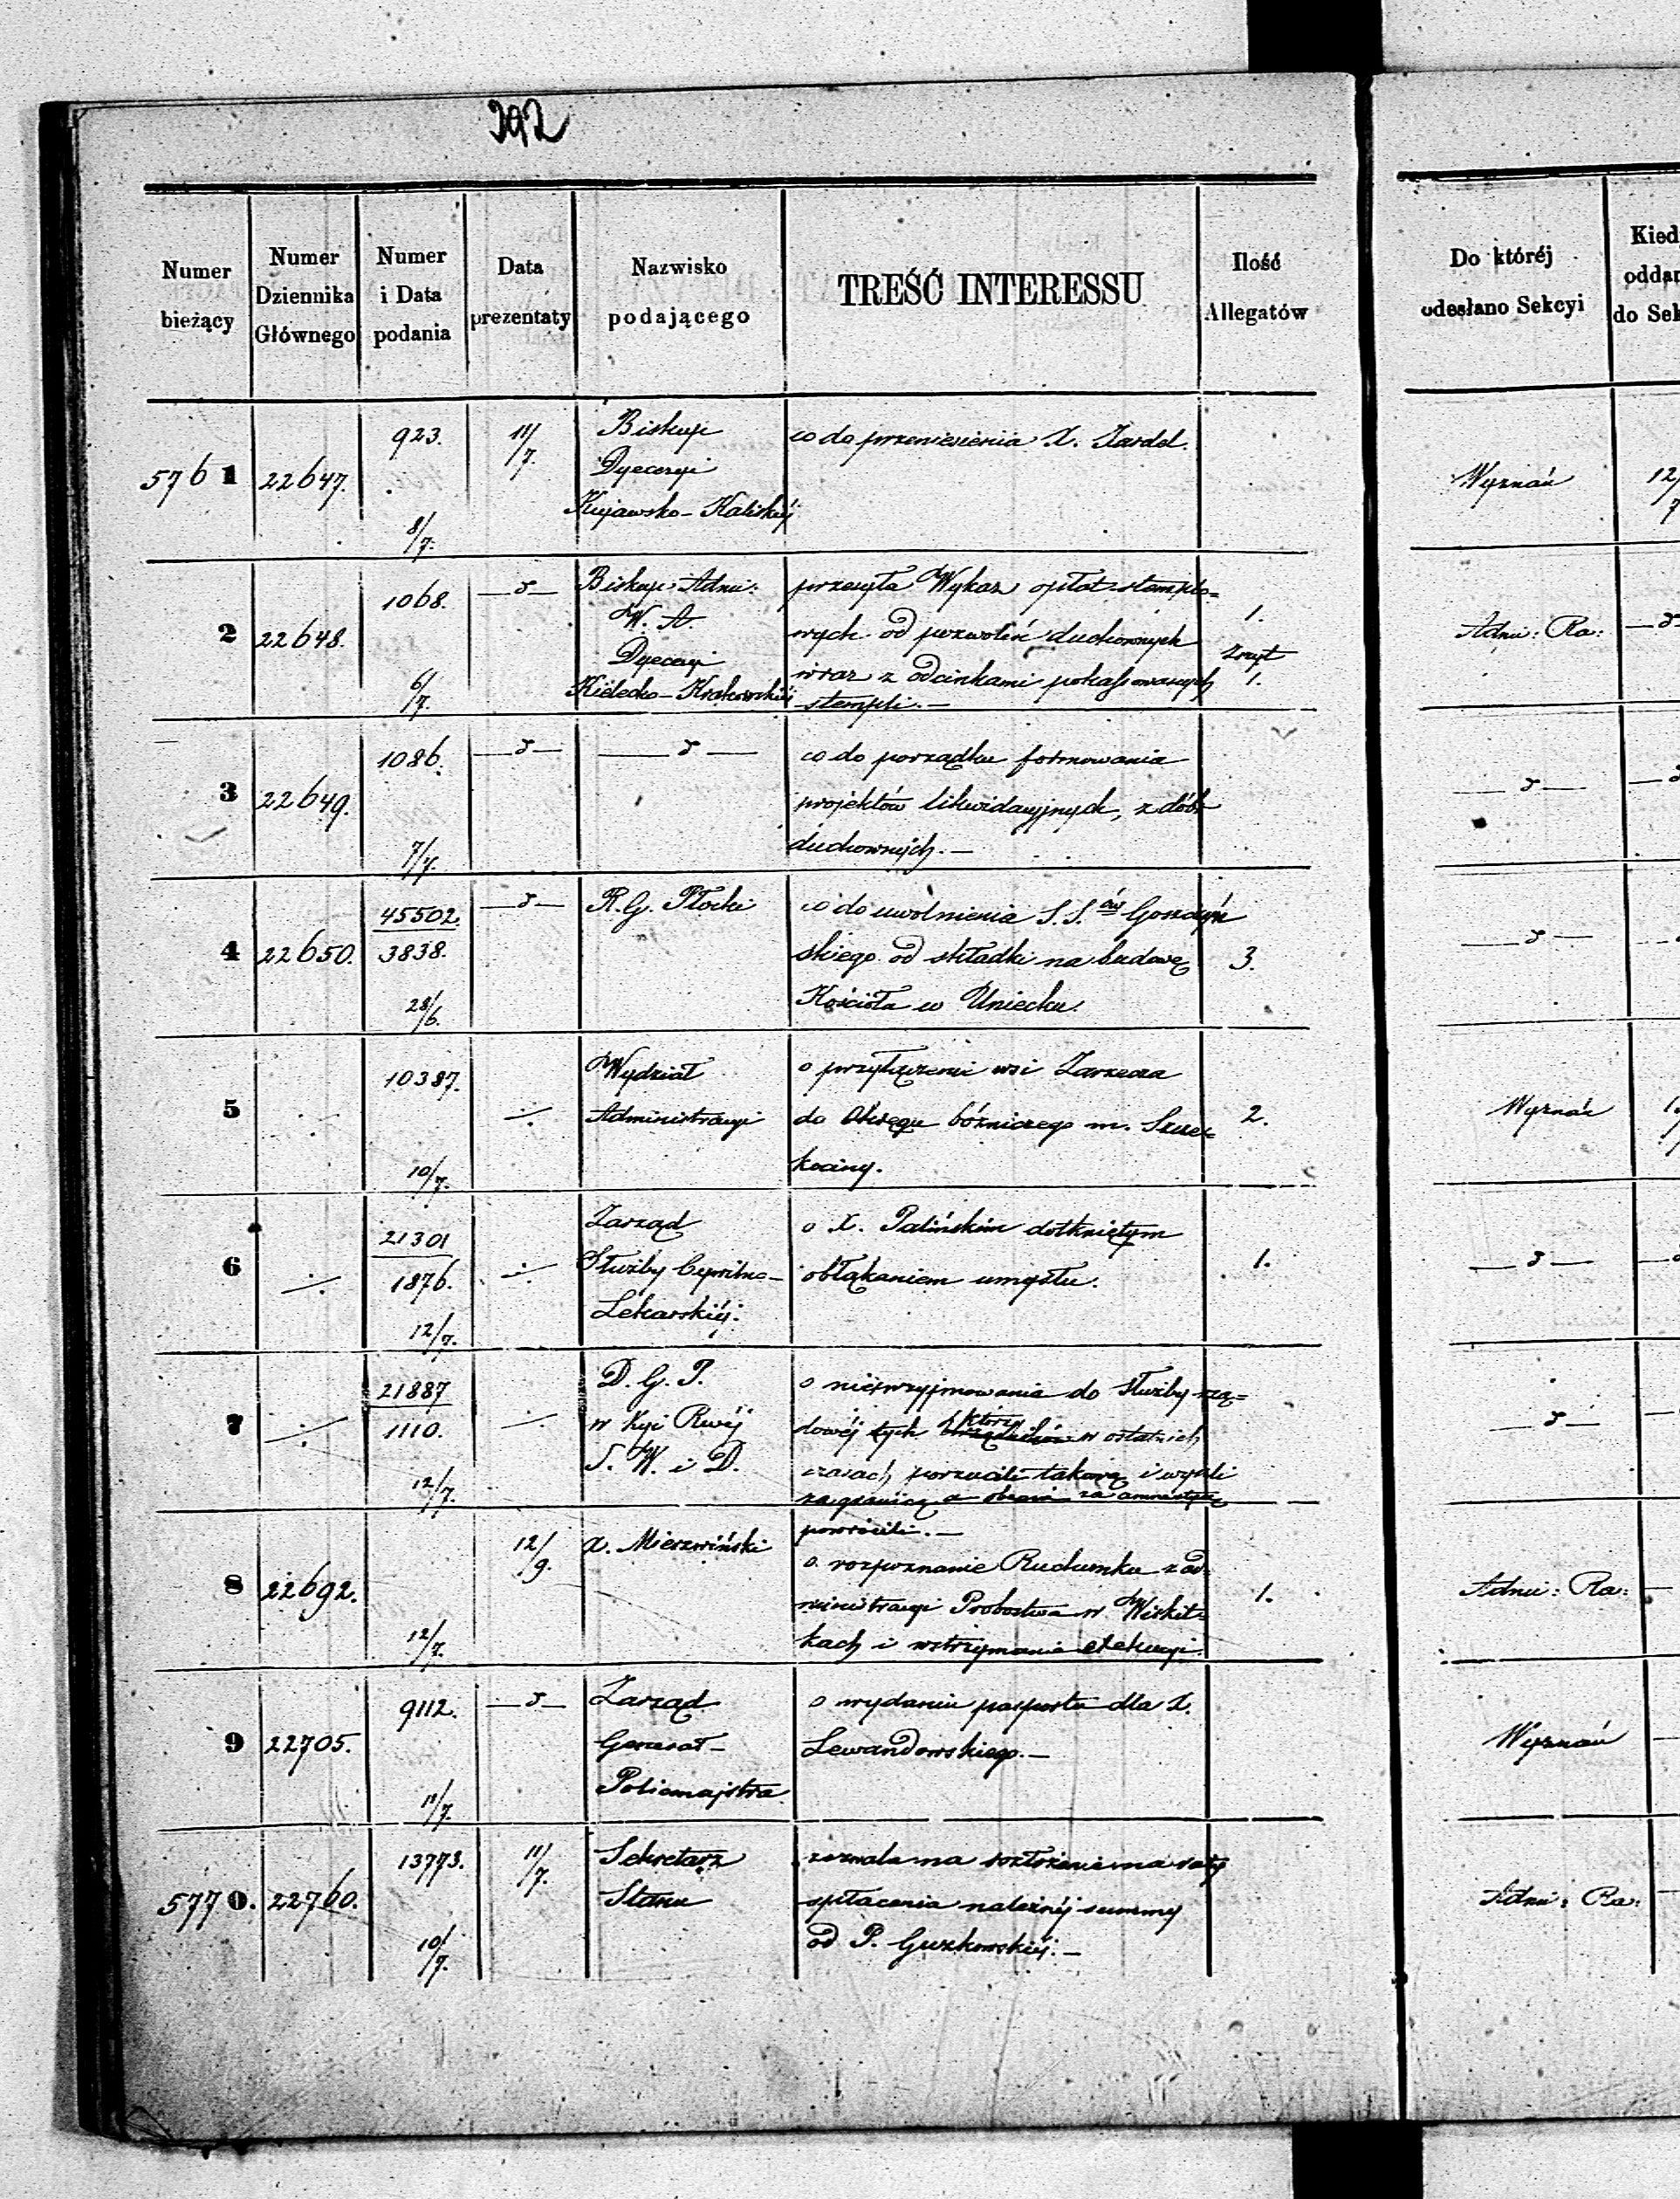 392
Numer bieżący
Numer Dziennika Głównego
Numer i Data podania
Data prezentaty
Nazwisko podającego
TREŚĆ INTERESSU
Ilość Allegatów
Do któréj odesłano Sekcyi
Kied
oddan
do Sek
5761 22647. 923. 8/7. 11/7. Biskup Dyecezyi Kujawsko-Kaliskiéj
co do przeniesienia X. Jardel.
Wyznań 12/7
2 22648. 1068. 6/7. —d— Biskup Adm: W. A. Dyecezyi Kielecko-Krakowskiéj
przesyła Wykaz opłat stemplo=
wych od pozwoleń duchownych
wraz z odcinkami pokassowanych
stempli.—
1. Zeszyt 1.
Adm: Ra: —d—
3 22649. 1086. 7/7. —d— —d—
co do porządku formowania
projektów likwidacyjnych, z dóbr
duchownych.—
—d—
4 22650. 45502. 3838. 28/6. —d— R. G. Płocki
co do uwolnienia S.S.ów Goszczyń
skiego od składki na budowę
Kościoła w Uniecku.
3.
—d—
5 ÷ 10387. 10/7. ÷ Wydział Administracyi
o przyłączenie wsi Zarzecza
do Okręgu bóżniczego m. Szcze=
kociny.
2.
Wyznań
6 ÷ 21301 1876. 12/7. ÷ Zarząd Służby Cywilno-Lekarskiéj.
o X. Palińskim dotkniętym
obłąkaniem umysłu.
1.
—d—
7 ÷ 21887 1110. 12/7. ÷ D. G. P. w Kyi Rwéj S. W. i D.
o nieprzyjmowanie do służby rzą=
dowéj tych którzy w ostatnich
czasach porzucili takową i wyszli
zagranicę a obecnie za amnestyą
powrócili.—
—d—
8 22692. 12/7. 12/9. X. Mierzwiński
o rozpoznanie Rachunku z ad=
ministracyi Probostwa w Wiskit=
kach i wstrzymanie exekucyi.
1.
Adm: Ra:
9 22705. 9112. 11/7. —d— Zarząd Generał-Policmajstra
o wydaniu paszportu dla X.
Lewandowskiego.—
Wyznań
5770. 22760. 13773. 10/7. 11/7. Sekretarz Stanu
zezwala na rozłożenie na raty
spłacenia należnéj summy
od P. Guzkowskiéj.—
Adm: Ra: